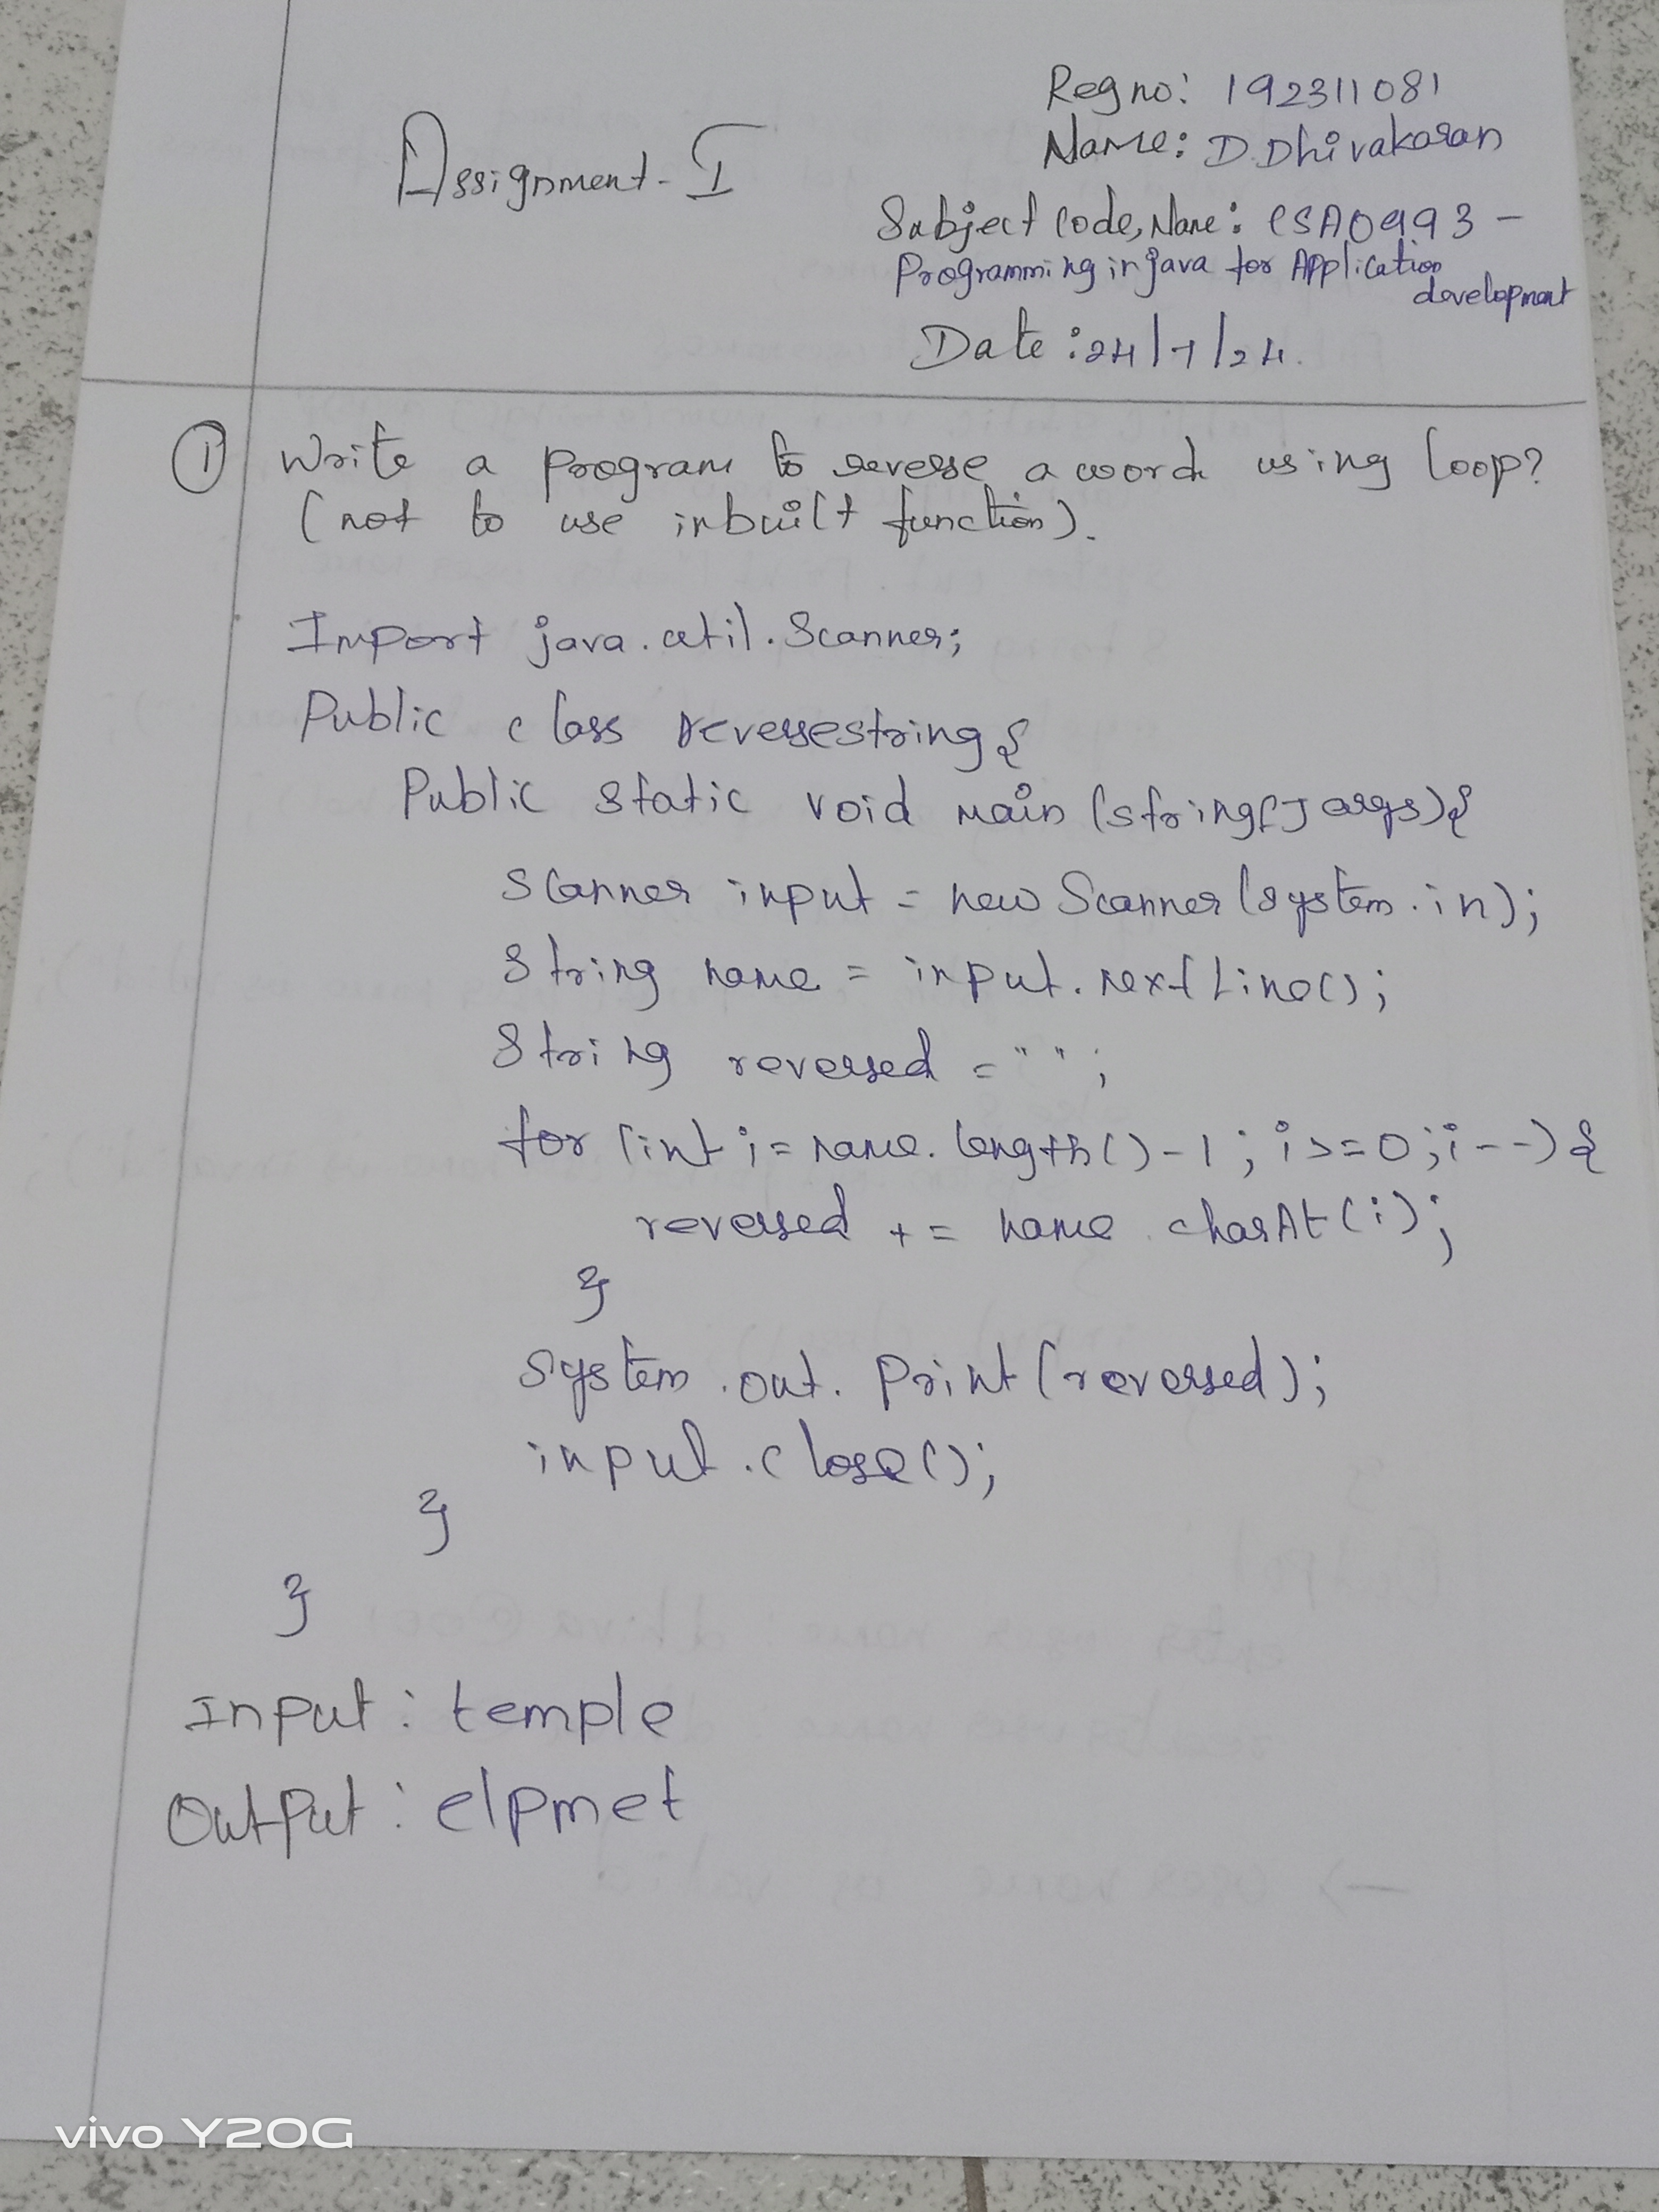 Reg no: 192311081
Name: D.Dhivakaran
Assignment-I
Subject Code, Name: CSA0993 -
Programming in java for Application
development
Date: 24/7/24.
① Write a program to reverse a word using loop?
(not to use inbuilt function).
Import java.util.Scanner;
Public class reversestring{
Public static void main (string[] args){
scanner input = new Scanner (system.in);
String name = input.nextLine();
String reversed = " ";
for (int i = name.length()-1; i>=0; i--){
reversed += name.charAt(i);
}
System.out.Print(reversed);
input.close();
}
}
Input: temple
Output: elpmet
vivo Y20G